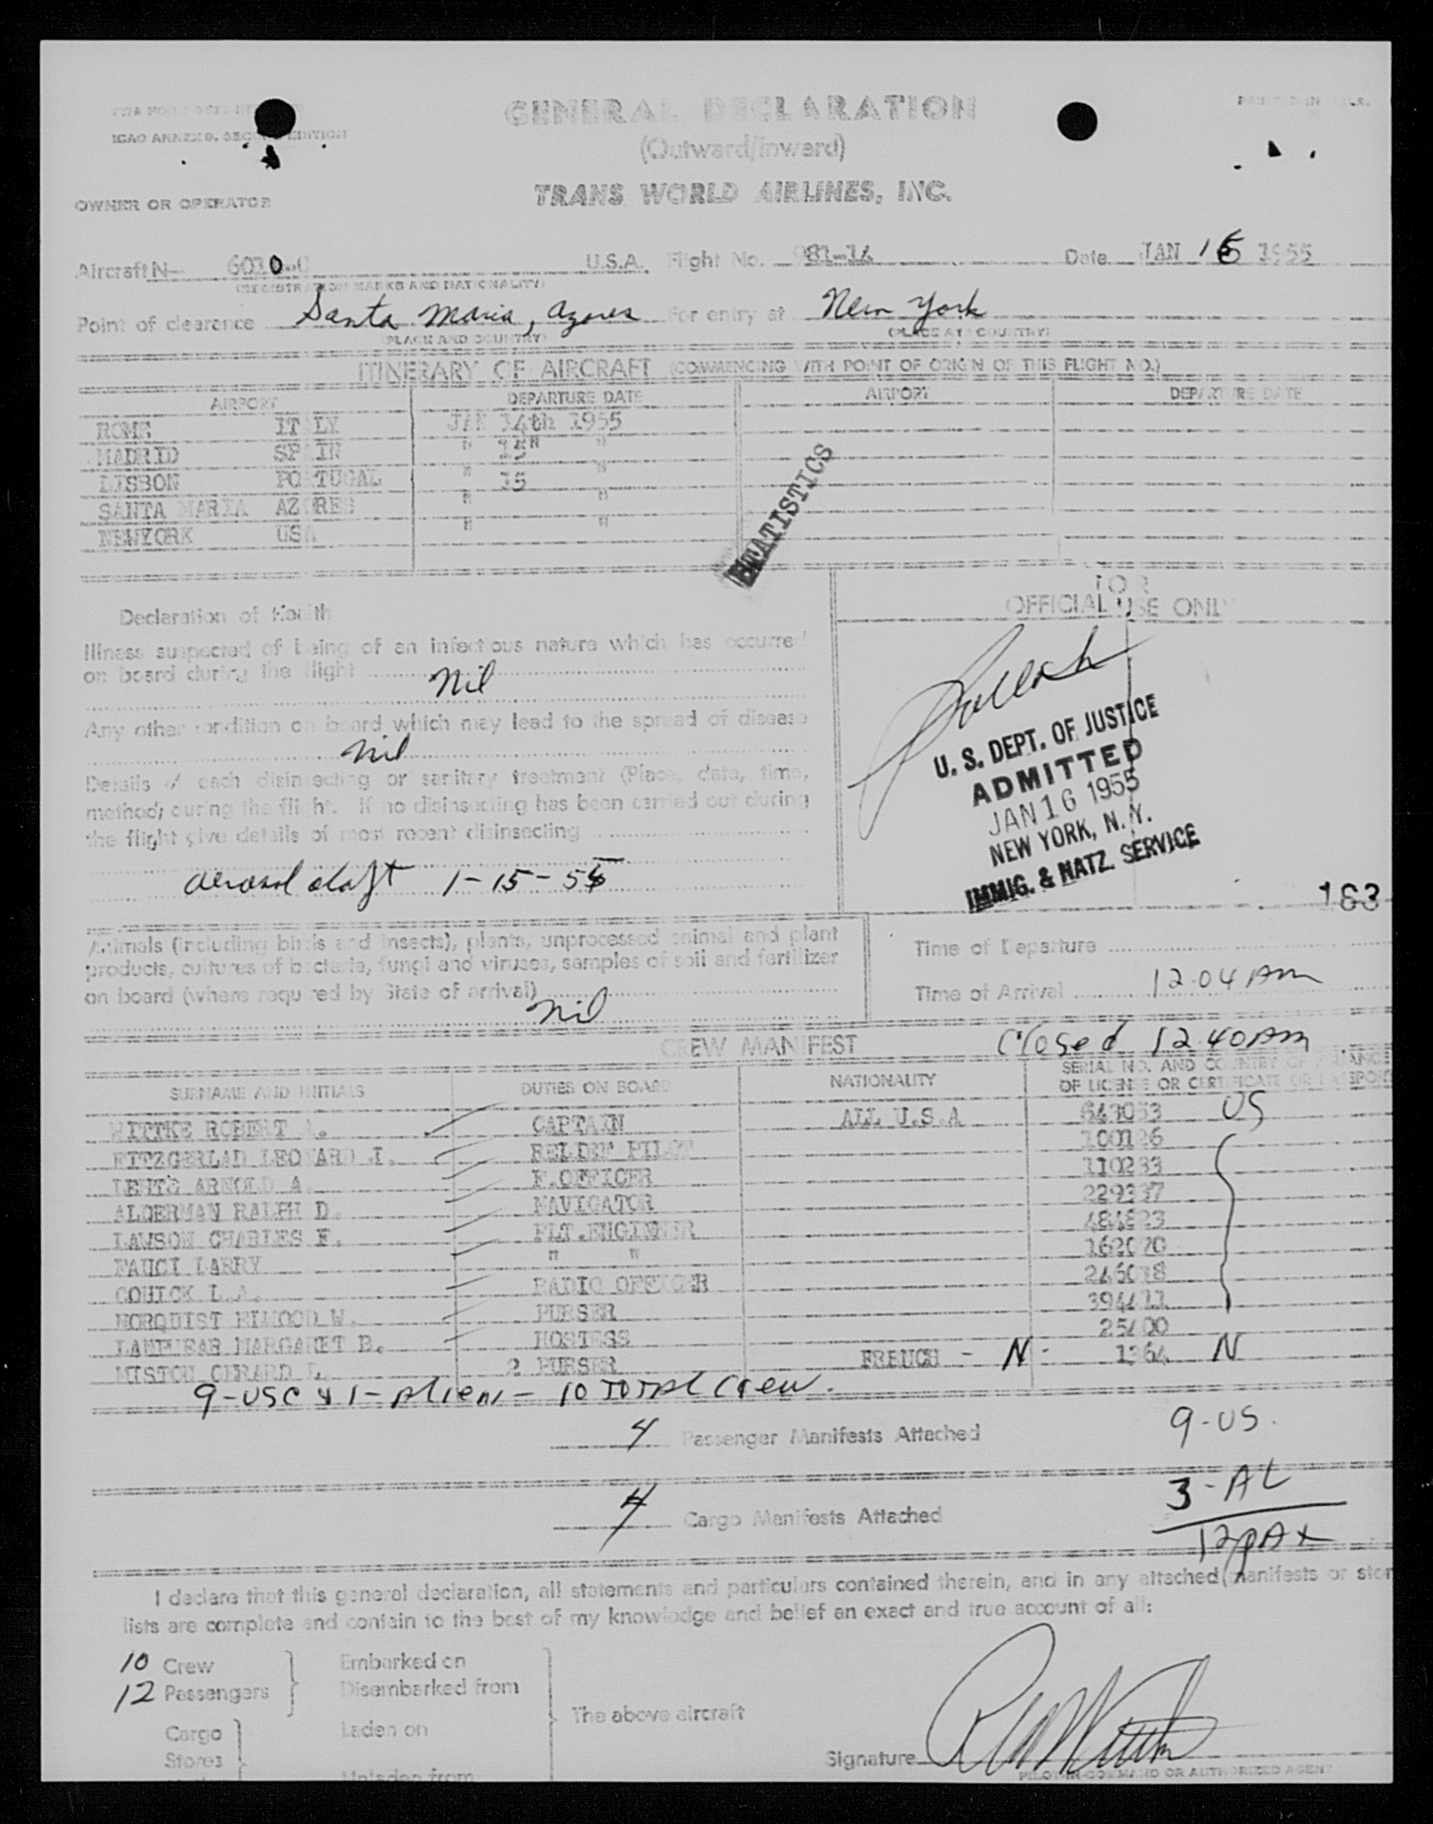 ICAO ANNEX 9, SECOND EDITION
GENERAL DECLARATION
(Outward/Inward)
OWNER OR OPERATOR
TRANS WORLD AIRLINES, INC.
Aircraft N- U.S.A. Flight No. 981-14 Date JAN 15 1955
(REGISTRATION MARKS AND NATIONALITY)
Point of clearance Santa Maria, Azores For entry at New York
(PLACE AND COUNTRY) (PLACE AND COUNTRY)
ITINERARY OF AIRCRAFT (COMMENCING WITH POINT OF ORIGIN OF THIS FLIGHT NO.)
AIRPORT DEPARTURE DATE AIRPORT DEPARTURE DATE
ROME ITALY JAN 14th 1955
MADRID SPAIN " " "
LISBON PORTUGAL " 15 "
SANTA MARIA AZORES " "
NEWYORK USA " "
STATISTICS
Declaration of Health
FOR
OFFICIAL USE ONLY
Illness suspected of being of an infectious nature which has occurred
on board during the flight
Nil
Any other condition on board which may lead to the spread of disease
Nil
Details of each disinsecting or sanitary treatment (Place, date, time,
method) during the flight. If no disinsecting has been carried out during
the flight give details of most recent disinsecting
aerosol 1-15-55
U. S. DEPT. OF JUSTICE
ADMITTED
JAN 16 1955
NEW YORK, N. Y.
IMMIG. & NATZ. SERVICE
163
Animals (including birds and insects), plants, unprocessed animal and plant
products, cultures of bacteria, fungi and viruses, samples of soil and fertilizer
on board (where required by State of arrival)
Nil
Time of Departure
Time of Arrival 12.04 AM
CREW MANIFEST
Closed 12 40 AM
SURNAME AND INITIALS DUTIES ON BOARD NATIONALITY SERIAL NO. AND COUNTRY OF ISSUANCE
OF LICENSE OR CERTIFICATE OR PASSPORT
WITTKE ROBERT CAPTAIN ALL U.S.A US
FITZGERLAD LEONARD J. RELIEF PILOT
LENTS ARNOLD A. F.OFFICER
ALDERMAN RALPH D. NAVIGATOR
LAWSON CHARLES F. FLT.ENGINEER
FAUCI LARRY " "
GOHICK L.A. RADIO OFFICER
NORQUIST ELWOOD W. PURSER
LANPHEAR MARGARET B. HOSTESS
MISTON GERARD L 2 PURSER FRENCH - N - 1364 N
9-USC & 1-Alien - 10 Total Crew.
4 Passenger Manifests Attached
9-US.
3-AL
4 Cargo Manifests Attached
12 PAX
I declare that this general declaration, all statements and particulars contained therein, and in any attached manifests or store
lists are complete and contain to the best of my knowledge and belief an exact and true account of all:
10 Crew
12 Passengers
Embarked on
Disembarked from
Cargo
Stores
Laden on
Unladen from
The above aircraft
Signature
PILOT-IN-COMMAND OR AUTHORIZED AGENT